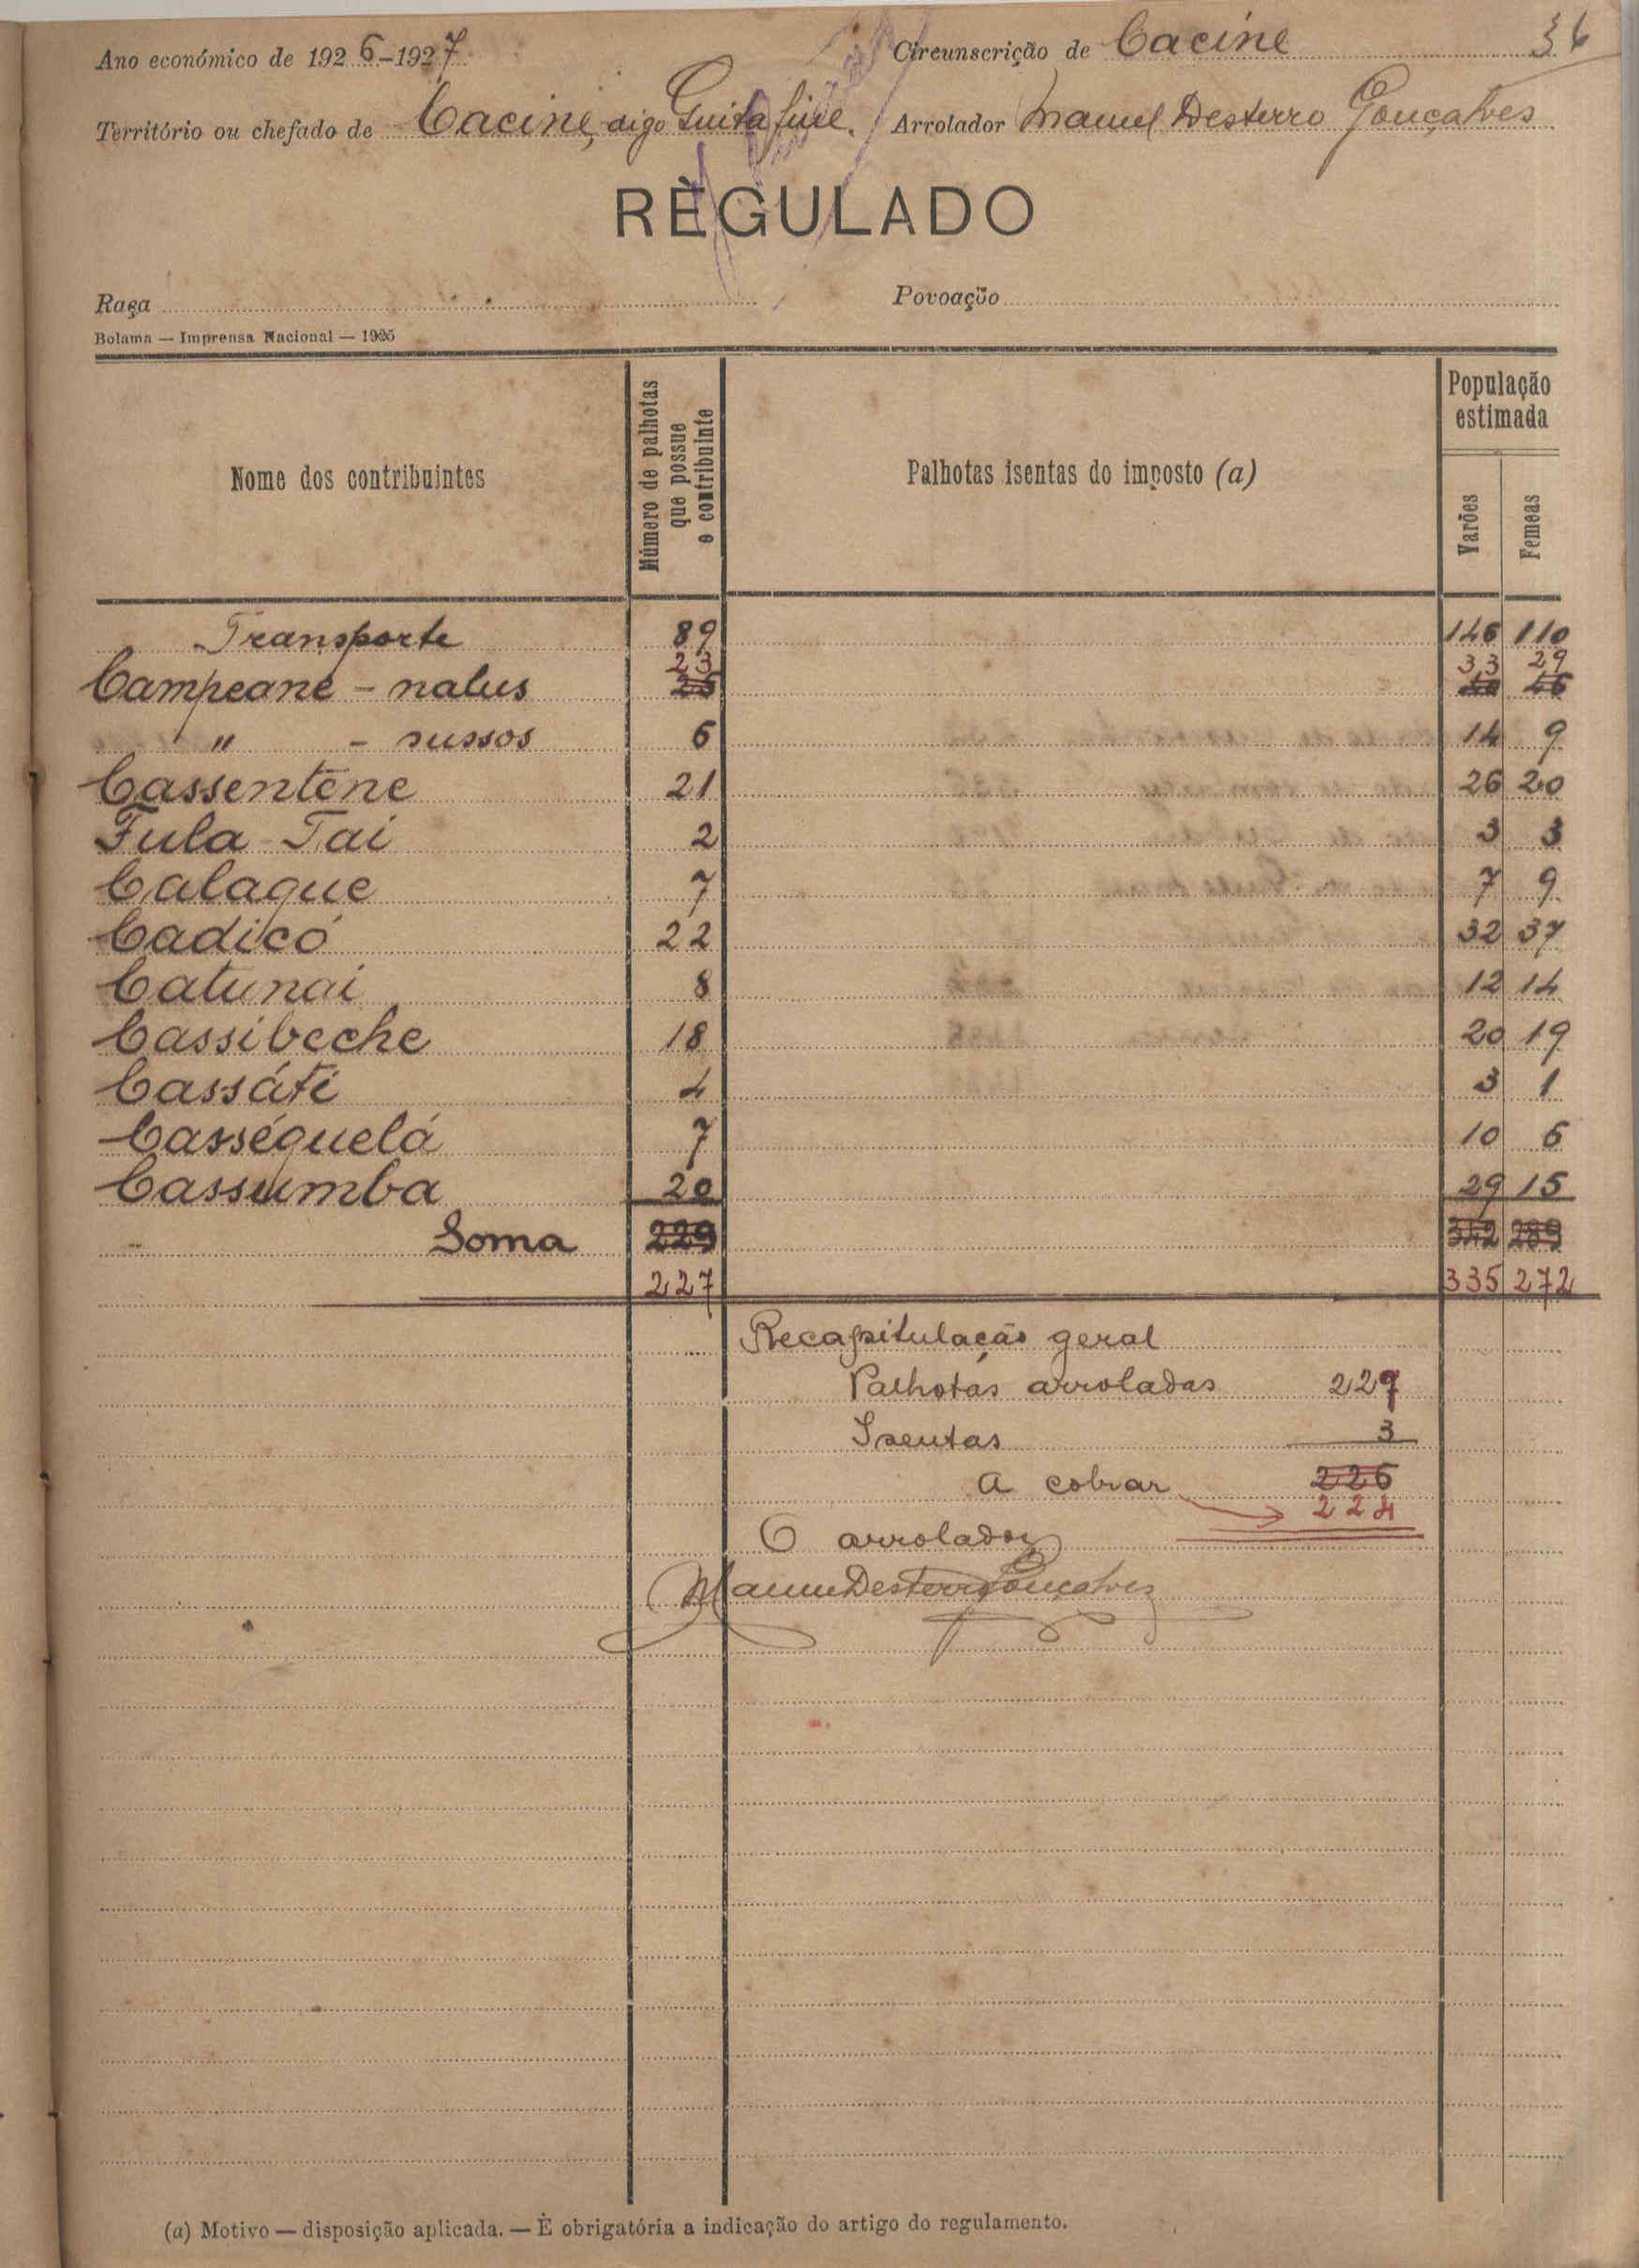 Ano económico de 1926-1927 Circunscrição de Cacine 36
Território ou chefado de Cacine, digo Guitafine. Arrolador Manuel Desterro Gonçalves
RÈGULADO
Raça Povoação
Bolama — Imprensa Nacional — 1925
Nome dos contribuintes
Número de palhotas que possue o contribuinte
Palhotas isentas do imposto (a)
População estimada
Varões
Femeas
Transporte 89 146 110
23 33 29
Campeane - nalus 25 40 46
" - sussos 6 14 9
Cassentene 21 26 20
Fula Tai 2 3 3
Calaque 7 7 9
Cadicó 22 32 37
Catunai 8 12 14
Cassibeche 18 20 19
Cassáti 4 3 1
Casséquelá 7 10 6
Cassumba 20 29 15
Soma 229 342 289
227 335 272
Recapitulação geral
Palhotas arroladas 227
Isentas 3
A cobrar 226
224
O arrolador
Manuel Desterro Gonçalves
(a) Motivo — disposição aplicada. — È obrigatória a indicação do artigo do regulamento.